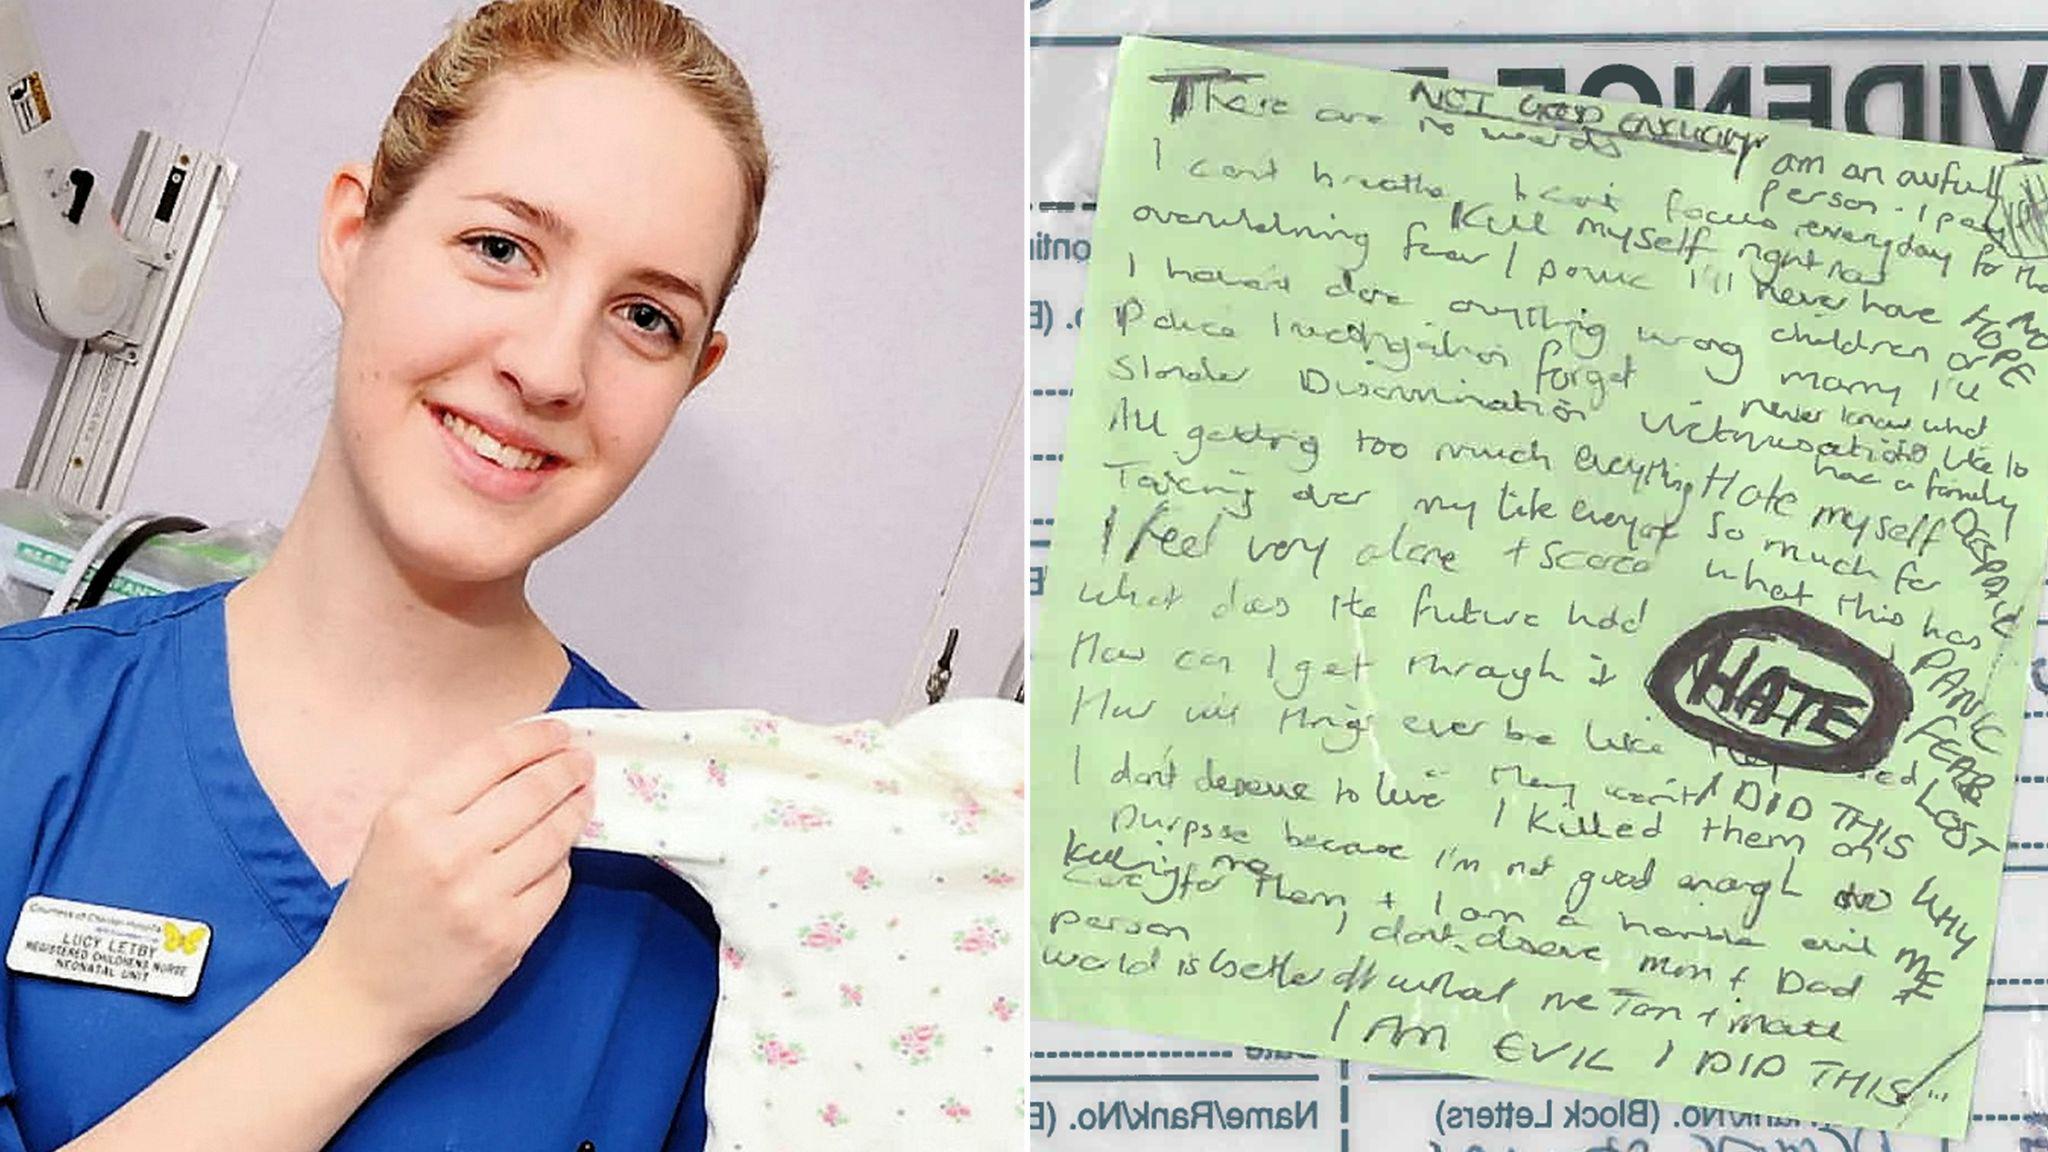 Countess of Chester Hospital
LUCY LETBY
REGISTERED CHILDRENS NURSE
NEONATAL UNIT
EVIDENCE
NOT GOOD ENOUGH
There are no words
am an awful
person - I pay
I can't breathe I can't focus
everyday for
Kill myself right now
overwhelming fear / panic
I'll never have
NO
HOPE
I haven't done anything wrong
children or
marry I'll
never know what
Police investigation forget
Slander Discrimination Victimisation
like to
have a family
All getting too much everything
Hate myself
DESPAIR
Taking over my life everyone
so much for
what this has
I feel very alone + scared
What does the future hold
HATE
PANIC
How can I get through it
FEAR
How will things ever be like
LOST
I don't deserve to live
They won't
I DID THIS
I killed them on
purpose because I'm not good enough to
WHY
ME
Killing me
care for them + I am a horrible evil
person I don't deserve Mom + Dad
world is better off without me Tom + Matt
I AM EVIL I DID THIS
Name/Rank/No.
Rank/No. (Block Letters)
Date